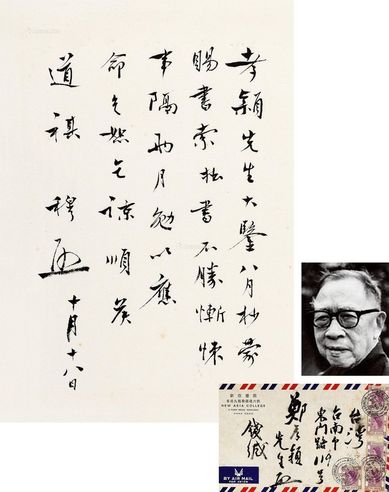 孝穎先生大鑒八月杪蒙
賜書索拙書不勝慚悚
事隔兩月勉以應
命恕乞諒順候
道祺 穆
十月十八日
新亞書院
NEW ASIA COLLEGE
台灣
台南市
東門路119号
鄭穎先生
錢緘
BY AIR MAIL
PAR AVION